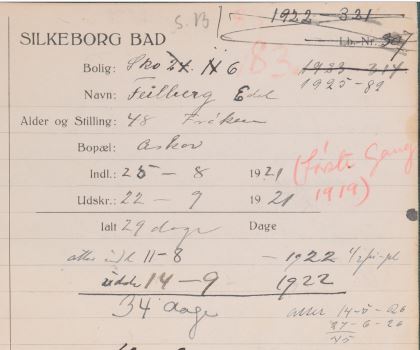 S. B 1922 - 321
SILKEBORG BAD Lb. Nr. 307
Bolig: Sko 24. N 6 83. 1923 - 314
1925 - 89
Navn: Feilberg Edel
Alder og Stilling: 48 Frøken
Bopæl: Askov
Indl.: 25 - 8 1921 (første Gang
Udskr.: 22 - 9 1921 1919)
Ialt 29 dage Dage
atter indl 11-8 - 1922 1/2 pl
udskr 14-9 1922
34 dage atter 14-5-26
27-6-26
45